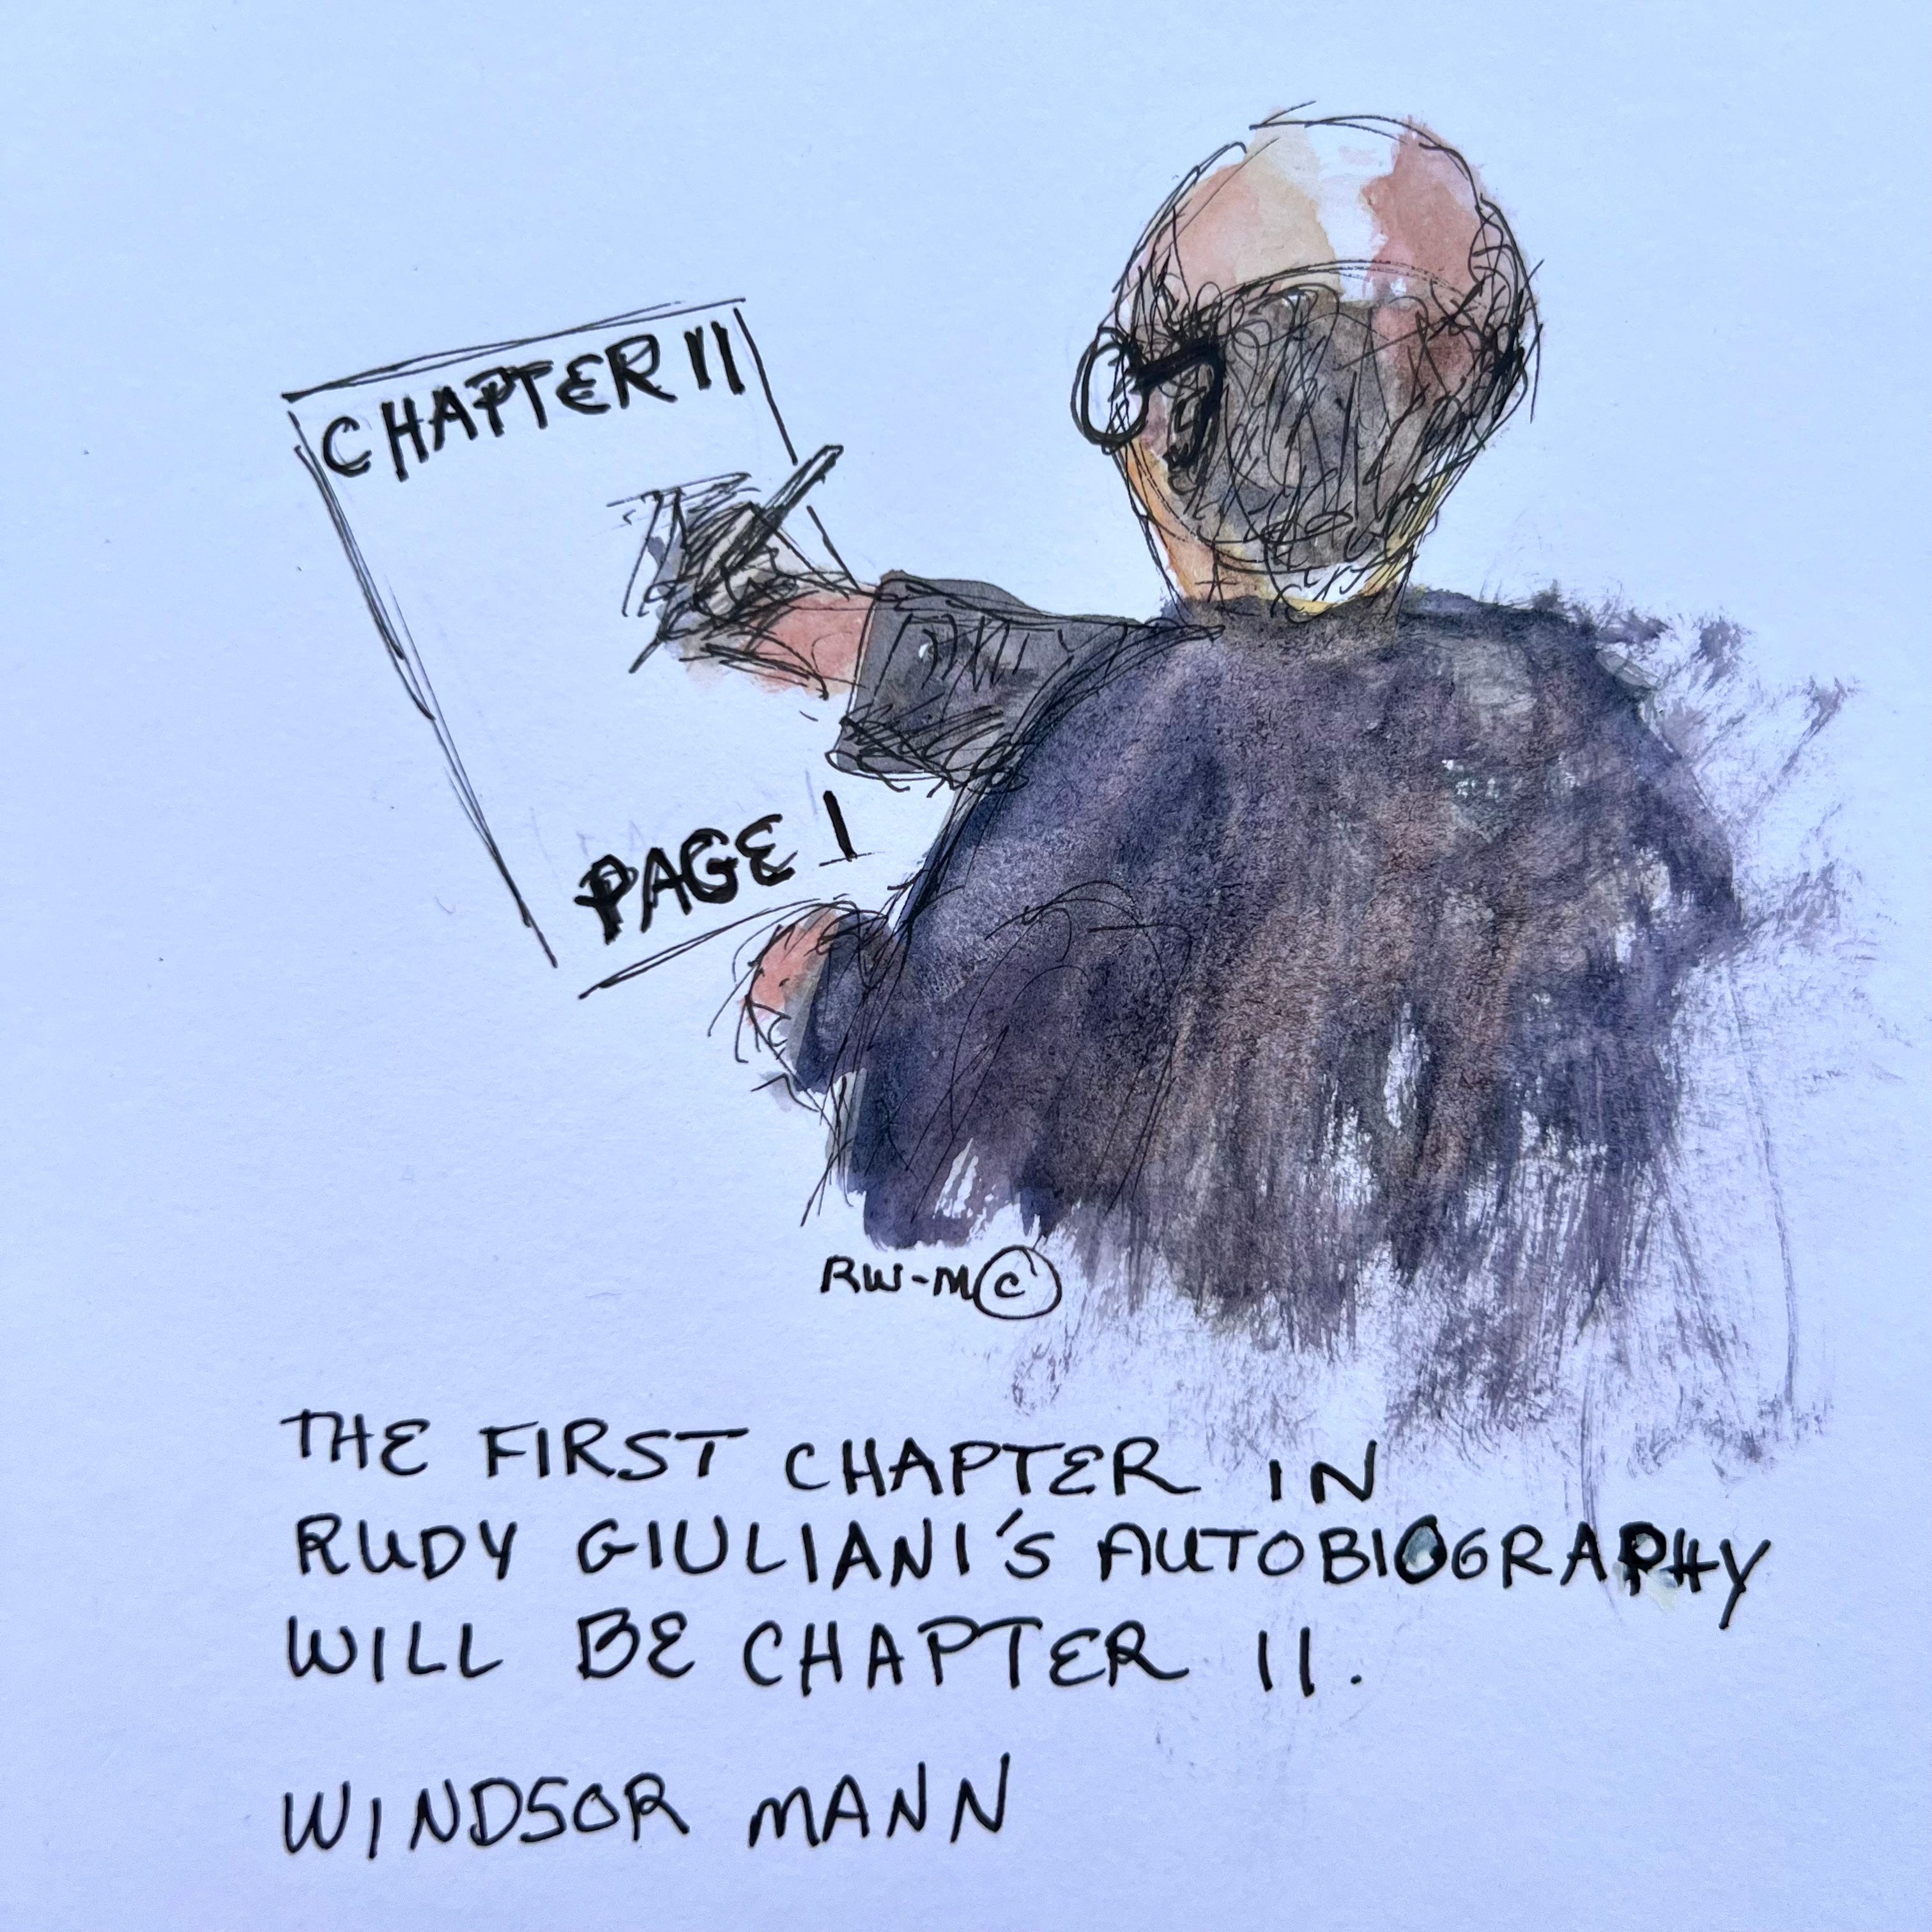 CHAPTER 11
PAGE 1
RW-M©
THE FIRST CHAPTER IN
RUDY GIULIANI'S AUTOBIOGRAPHY
WILL BE CHAPTER 11.
WINDSOR MANN